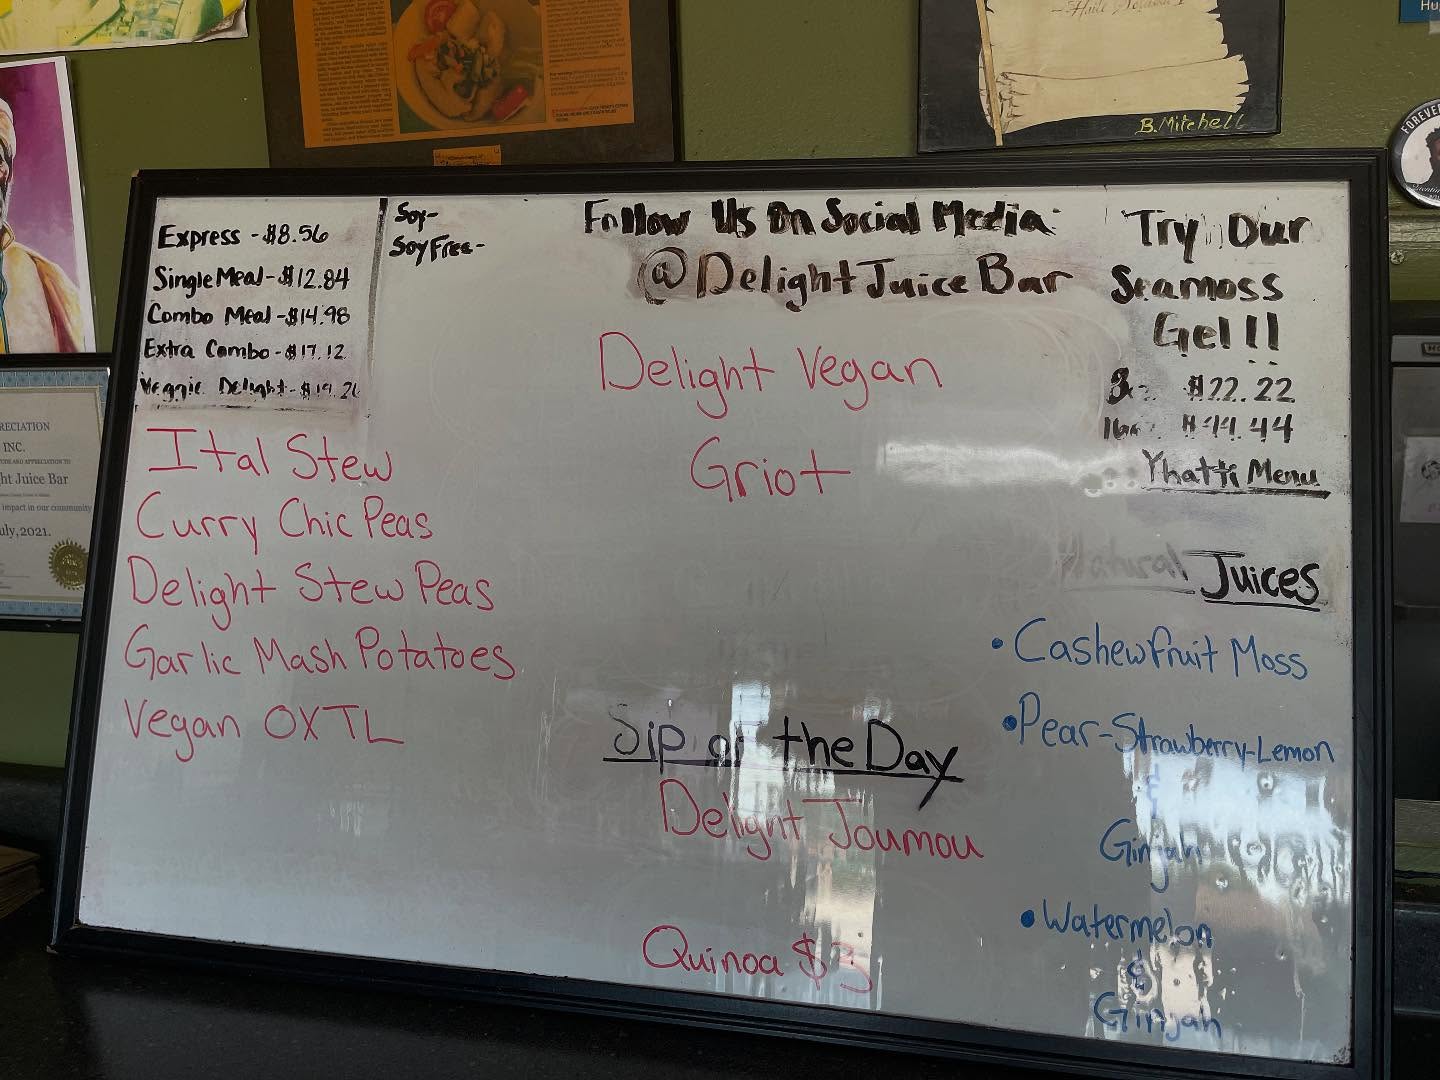 B. Mitchell
FOREVER
RECIATION
INC.
ht Juice Bar
impact in our community
uly, 2021.
Express - $8.56
Single Meal - $12.84
Combo Meal - $14.98
Extra Combo - $17.12
Veggie Delight - $19.26
Soy-
Soy Free-
Follow Us On Social Media:
@DelightJuiceBar
Try Our
Seamoss
Gel!!
$22.22
$44.44
Yhatti Menu
Ital Stew
Curry Chic Peas
Delight Stew Peas
Garlic Mash Potatoes
Vegan OXTL
Delight Vegan
Griot
Sip of the Day
Delight Joumou
Quinoa $3
Natural Juices
• Cashewfruit Moss
• Pear-Strawberry-Lemon
&
Ginjah
• Watermelon
&
Ginjah